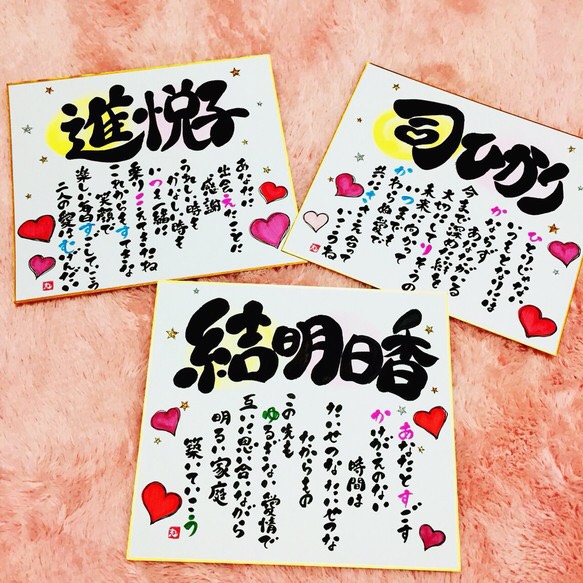 進悦子
あなたに
出会えたことに
感謝
うれしい時も
かなしい時も
いつも一緒に
乗りこえてきたね
これからもすてきな
笑顔で
楽しい毎日すごしていこう
二人の愛はむげんだい
司ひかり
ひとりじゃない
いつもとなりには
かならず
あなたがいる
今まで深めた絆を
大切にしてりそうの
未来へ
いつまでも向かって
かわらぬ愛で
共にささえ合って
いこうね
結明日香
あなたとすごす
かけがえのない
時間は
たいせつなたいせつな
たからもの
この先も
ゆるぎない愛情で
互いに思い合いながら
明るい家庭
築いていこう